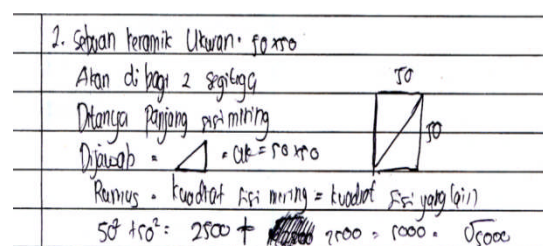 2. Sebuah keramik Ukuran. 50x50
Akan di bagi 2 segitiga
50
Ditanya Panjang sisi miring
50
Dijawab = = Uk = 50x50
Rumus = kuadrat sisi miring = kuadrat sisi yang lain
50² + 50² = 2500 + 2500 = 5000 = √5000